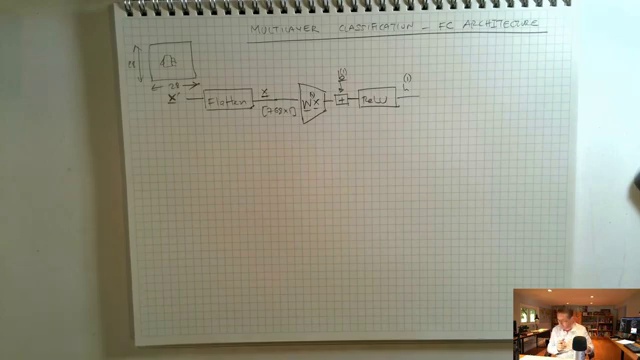 MULTILAYER CLASSIFICATION - FC ARCHITECTURE
28
28
x' Flatten x W(1) x + ReLU
b(1)
h(1)